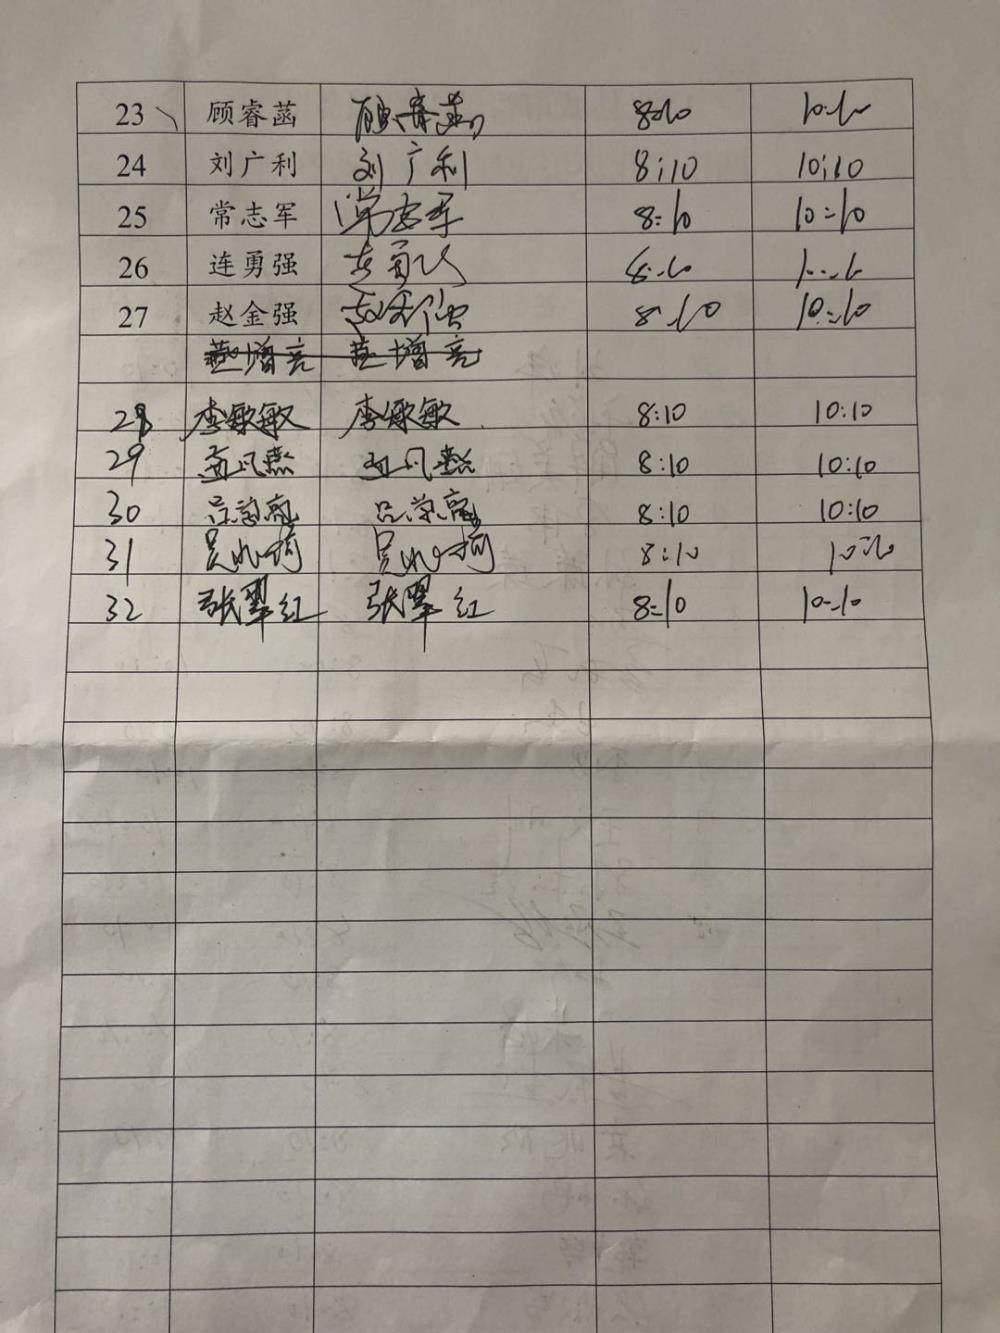 23 顾睿菡 顾睿菡 8:10 10:10
24 刘广利 刘广利 8:10 10:10
25 常志军 常志军 8:10 10:10
26 连勇强 连勇强 8:10 10:10
27 赵金强 赵金强 8:10 10:10
增亮 增亮
28 李敏敏 李敏敏 8:10 10:10
29 孟凤燕 孟凤燕 8:10 10:10
30 吕荣亮 吕荣亮 8:10 10:10
31 吴 吴 8:10 10:10
32 张翠红 张翠红 8:10 10:10